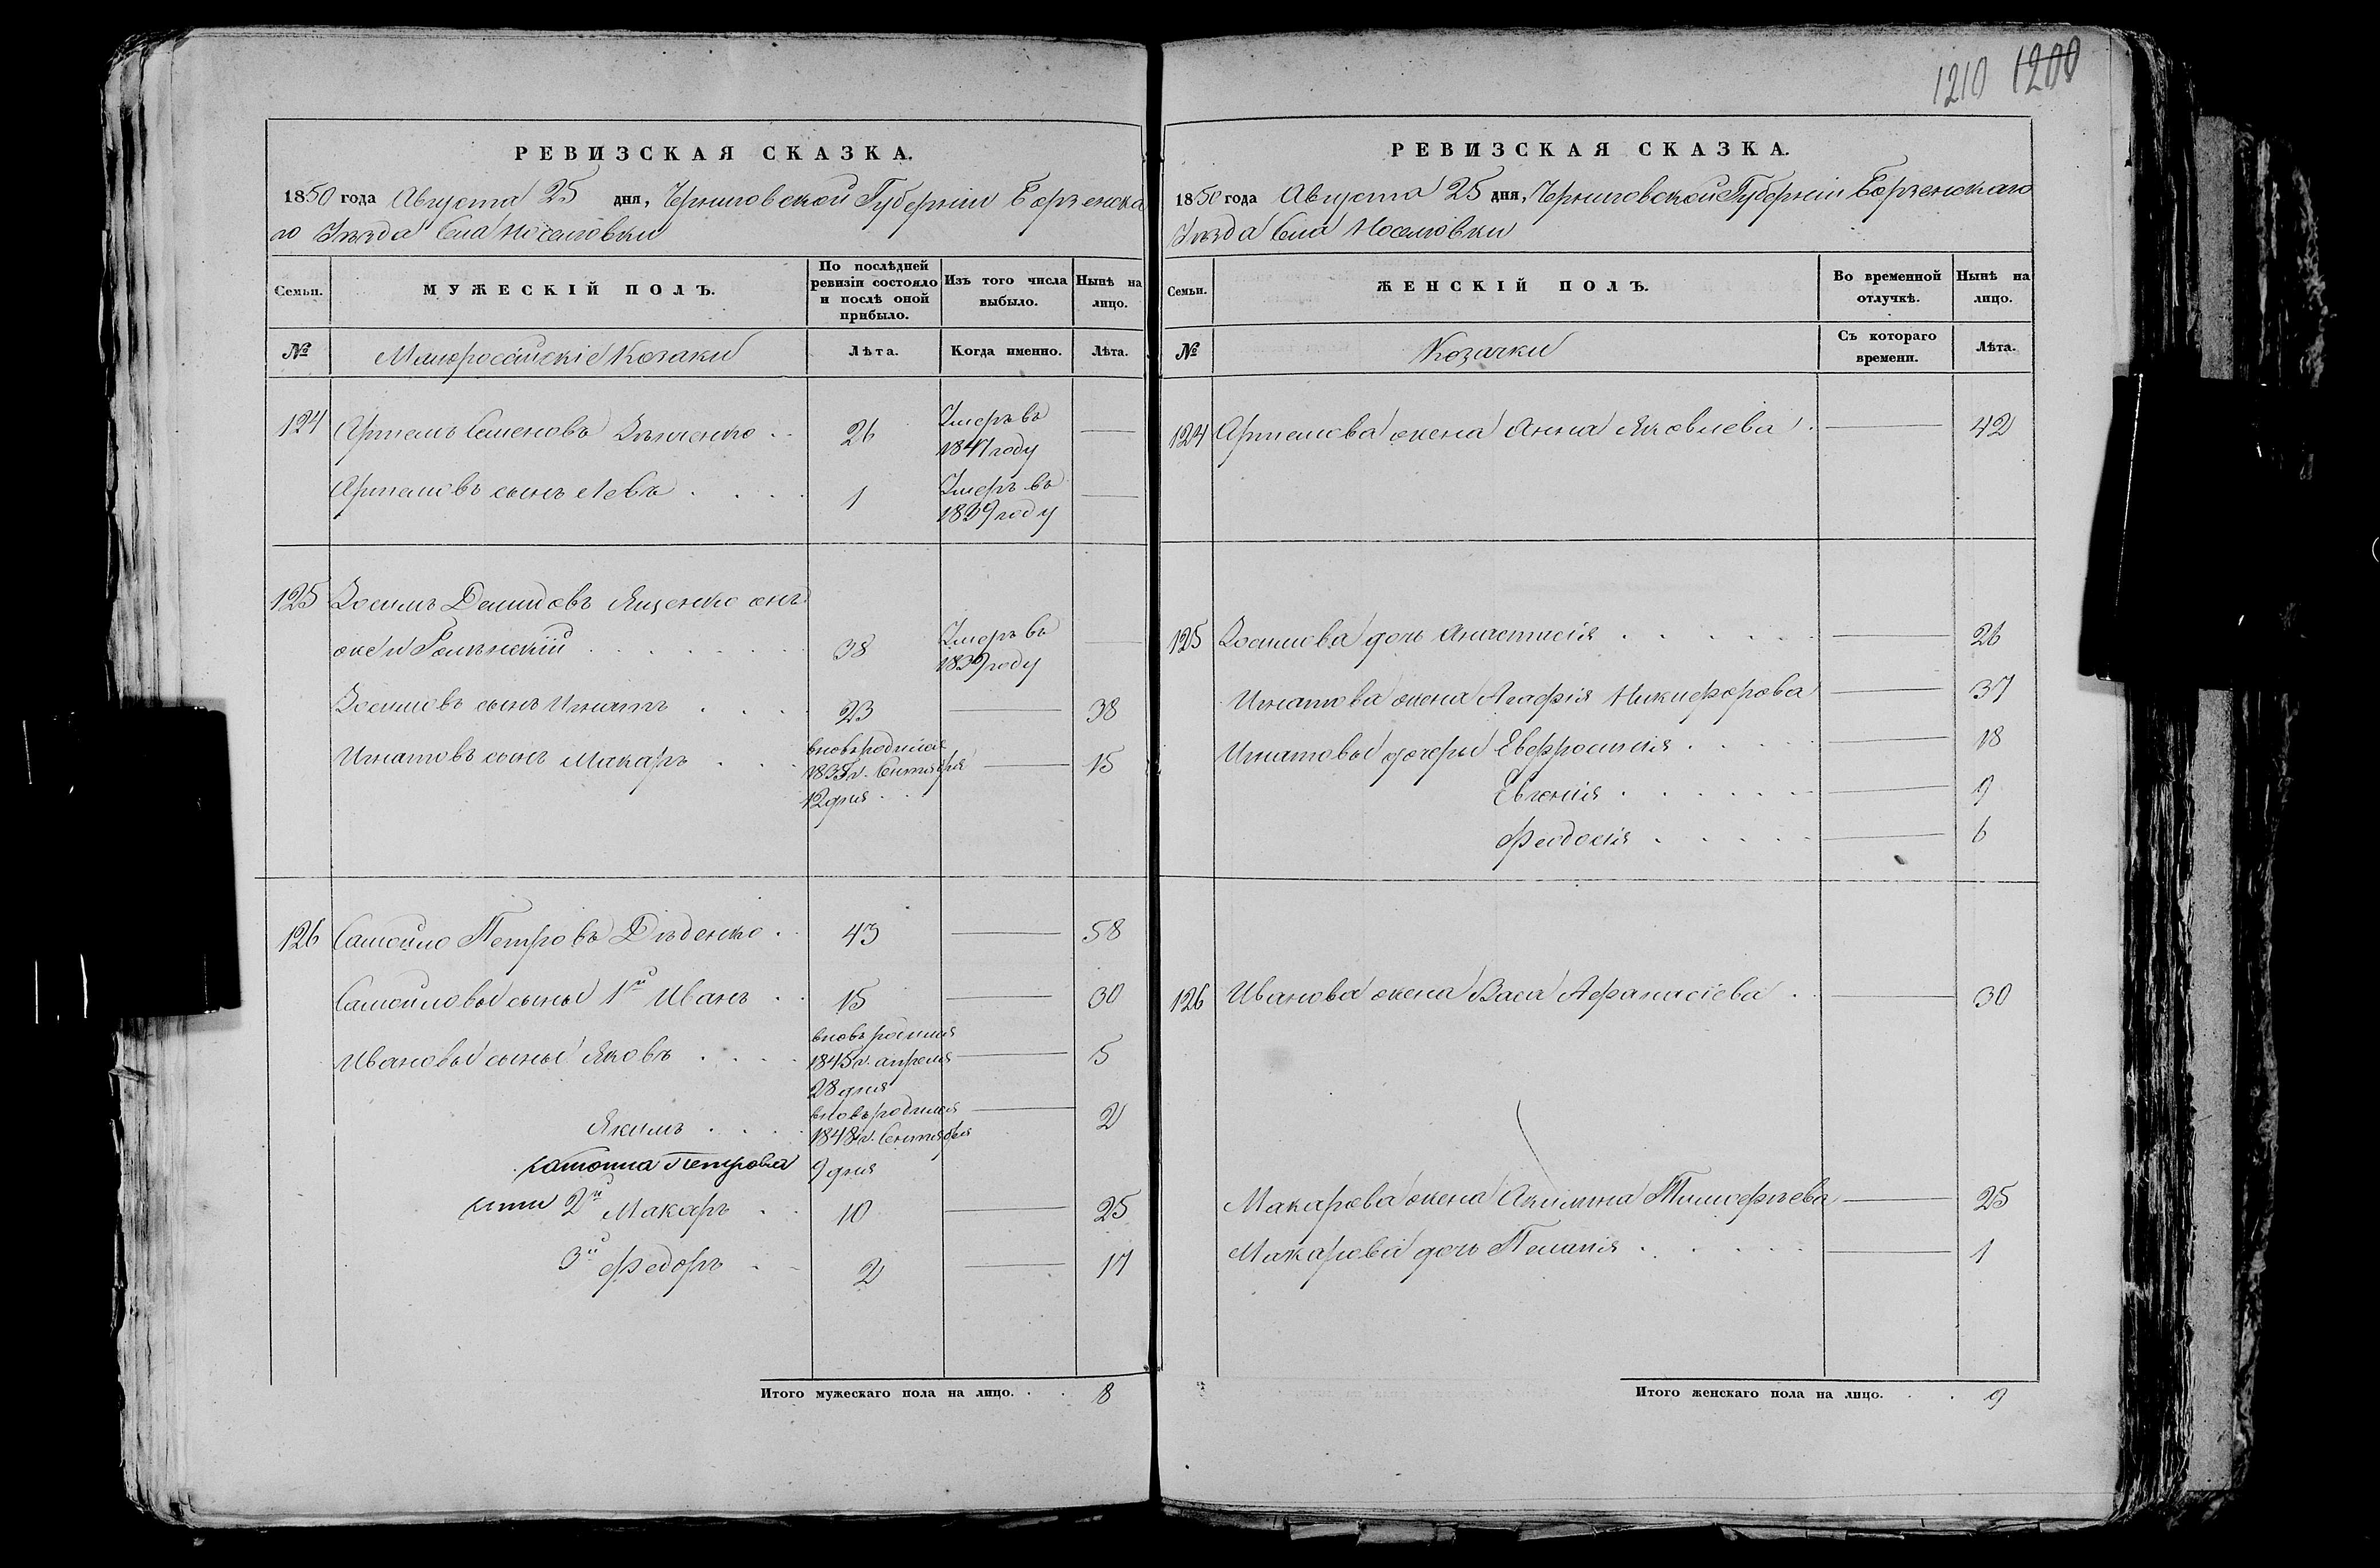 1210 1200
РЕВИЗСКАЯ СКАЗКА.
1850 года Августа 25 дня, Черниговской Губерніи Борзенска
го Уѣзда Села Носеловки
Семьи.
МУЖЕСКІЙ ПОЛЪ.
По послѣдней ревизіи состояло и послѣ оной прибыло.
Изъ того числа выбыло.
Нынѣ на лицо.
№
Малоросійскіе Козаки
Лѣта.
Когда именно.
Лѣта.
124 Артемъ Семеновъ 26 Умеръ въ 1841 году —
Артемовъ сынъ Левъ 1 Умеръ въ 1839 году —
125 Зосимъ Демидовъ Яценко онъ
же и 38 Умеръ въ 1839 году —
Зосимовъ сынъ Игнатъ 23 — 38
Игнатовъ сынъ Макаръ вновьродился 1835 г. Сентября 12 дня — 15
126 Самойло Петровъ Дѣденко 43 — 58
Самойловы сыны 1й Иванъ 15 — 30
Ивановы сыны Яковъ 1845 г. апреля 28 дня — 5
Якимъ вновьродился 1848 г. Сентября 9 дня — 2
Петрова
2й Макаръ 10 — 25
3й Федоръ 2 — 17
Итого мужескаго пола на лицо. 8
РЕВИЗСКАЯ СКАЗКА.
1850 года Августа 25 дня, Черниговской Губерніи Борзенскаго
Уѣзда Села Носеловки
Семьи.
ЖЕНСКІЙ ПОЛЪ.
Во временной отлучкѣ.
Нынѣ на лицо.
№
Козачки
Съ котораго времени.
Лѣта.
124 Артемова жена Анна Яковлева — 42
125 Зосимова дочь Анастасія — 26
Игнатова жена Агафія Никифорова — 37
Игнатовы дочери Евфросинія — 18
Евгенія — 9
Феодосія — 6
126 Иванова жена Васа Афанасіева — 30
Макарова жена Акилина Тимофѣева — 25
Макарова дочь Пелагія — 1
Итого женскаго пола на лицо. 9